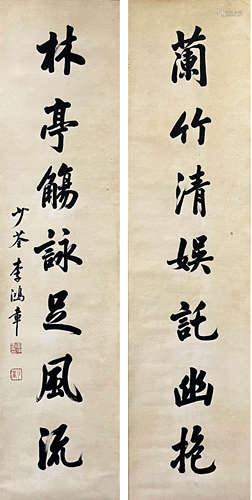 蘭竹清娱託幽抱
林亭觴詠足風流
少荃 李鴻章